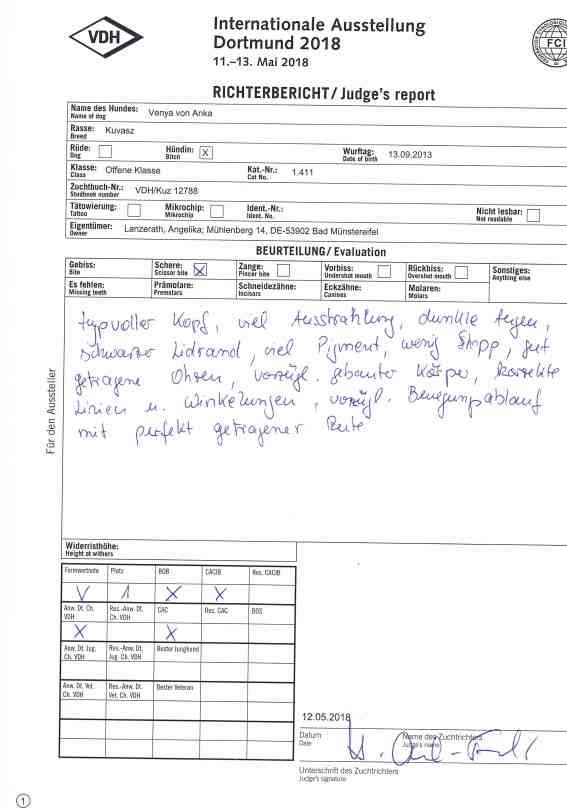 VDH
Internationale Ausstellung
Dortmund 2018
11.–13. Mai 2018
FCI
RICHTERBERICHT/Judge's report
Name des Hundes: Venya von Anka
Name of dog
Rasse: Kuvasz
Breed
Rüde: Hündin: X Wurftag: 13.09.2013
Dog Bitch Date of birth
Klasse: Offene Klasse Kat.-Nr.: 1.411
Class Cat No.
Zuchtbuch-Nr.: VDH/Kuz 12788
Studbook number
Tätowierung: Mikrochip: Ident.-Nr.: Nicht lesbar:
Tattoo Mikrochip Ident. No. Not readable
Eigentümer: Lanzerath, Angelika; Mühlenberg 14, DE-53902 Bad Münstereifel
Owner
BEURTEILUNG/Evaluation
Gebiss: Schere: X Zange: Vorbiss: Rückbiss: Sonstiges:
Bite Scissor bite Pincer bite Undershot mouth Overshot mouth Anything else
Es fehlen: Prämolare: Schneidezähne: Eckzähne: Molaren:
Missing teeth Premolars Incisors Canines Molars
Für den Aussteller
typvoller Kopf, viel Ausstrahlung, dunkle Augen,
schwarzer Lidrand, viel Pigment, wenig Stopp, gut
getragene Ohren, vorzügl. gebauter Körper, korrekte
Linien u. Winkelungen, vorzügl. Bewegungsablauf
mit perfekt getragener Rute
Widerristhöhe:
Height at withers
Formwertnote Platz BOB CACIB Res. CACIB
V 1 X X
Anw. Dt. Ch. VDH Res.-Anw. Dt. Ch. VDH CAC Res. CAC BOS
X X
Anw. Dt. Jug. Ch. VDH Res.-Anw. Dt. Jug. Ch. VDH Bester Junghund
Anw. Dt. Vet. Ch. VDH Res.-Anw. Dt. Vet. Ch. VDH Bester Veteran
12.05.2018
Datum Name des Zuchtrichters
Date Judge's name
Unterschrift des Zuchtrichters
Judge's signature
1